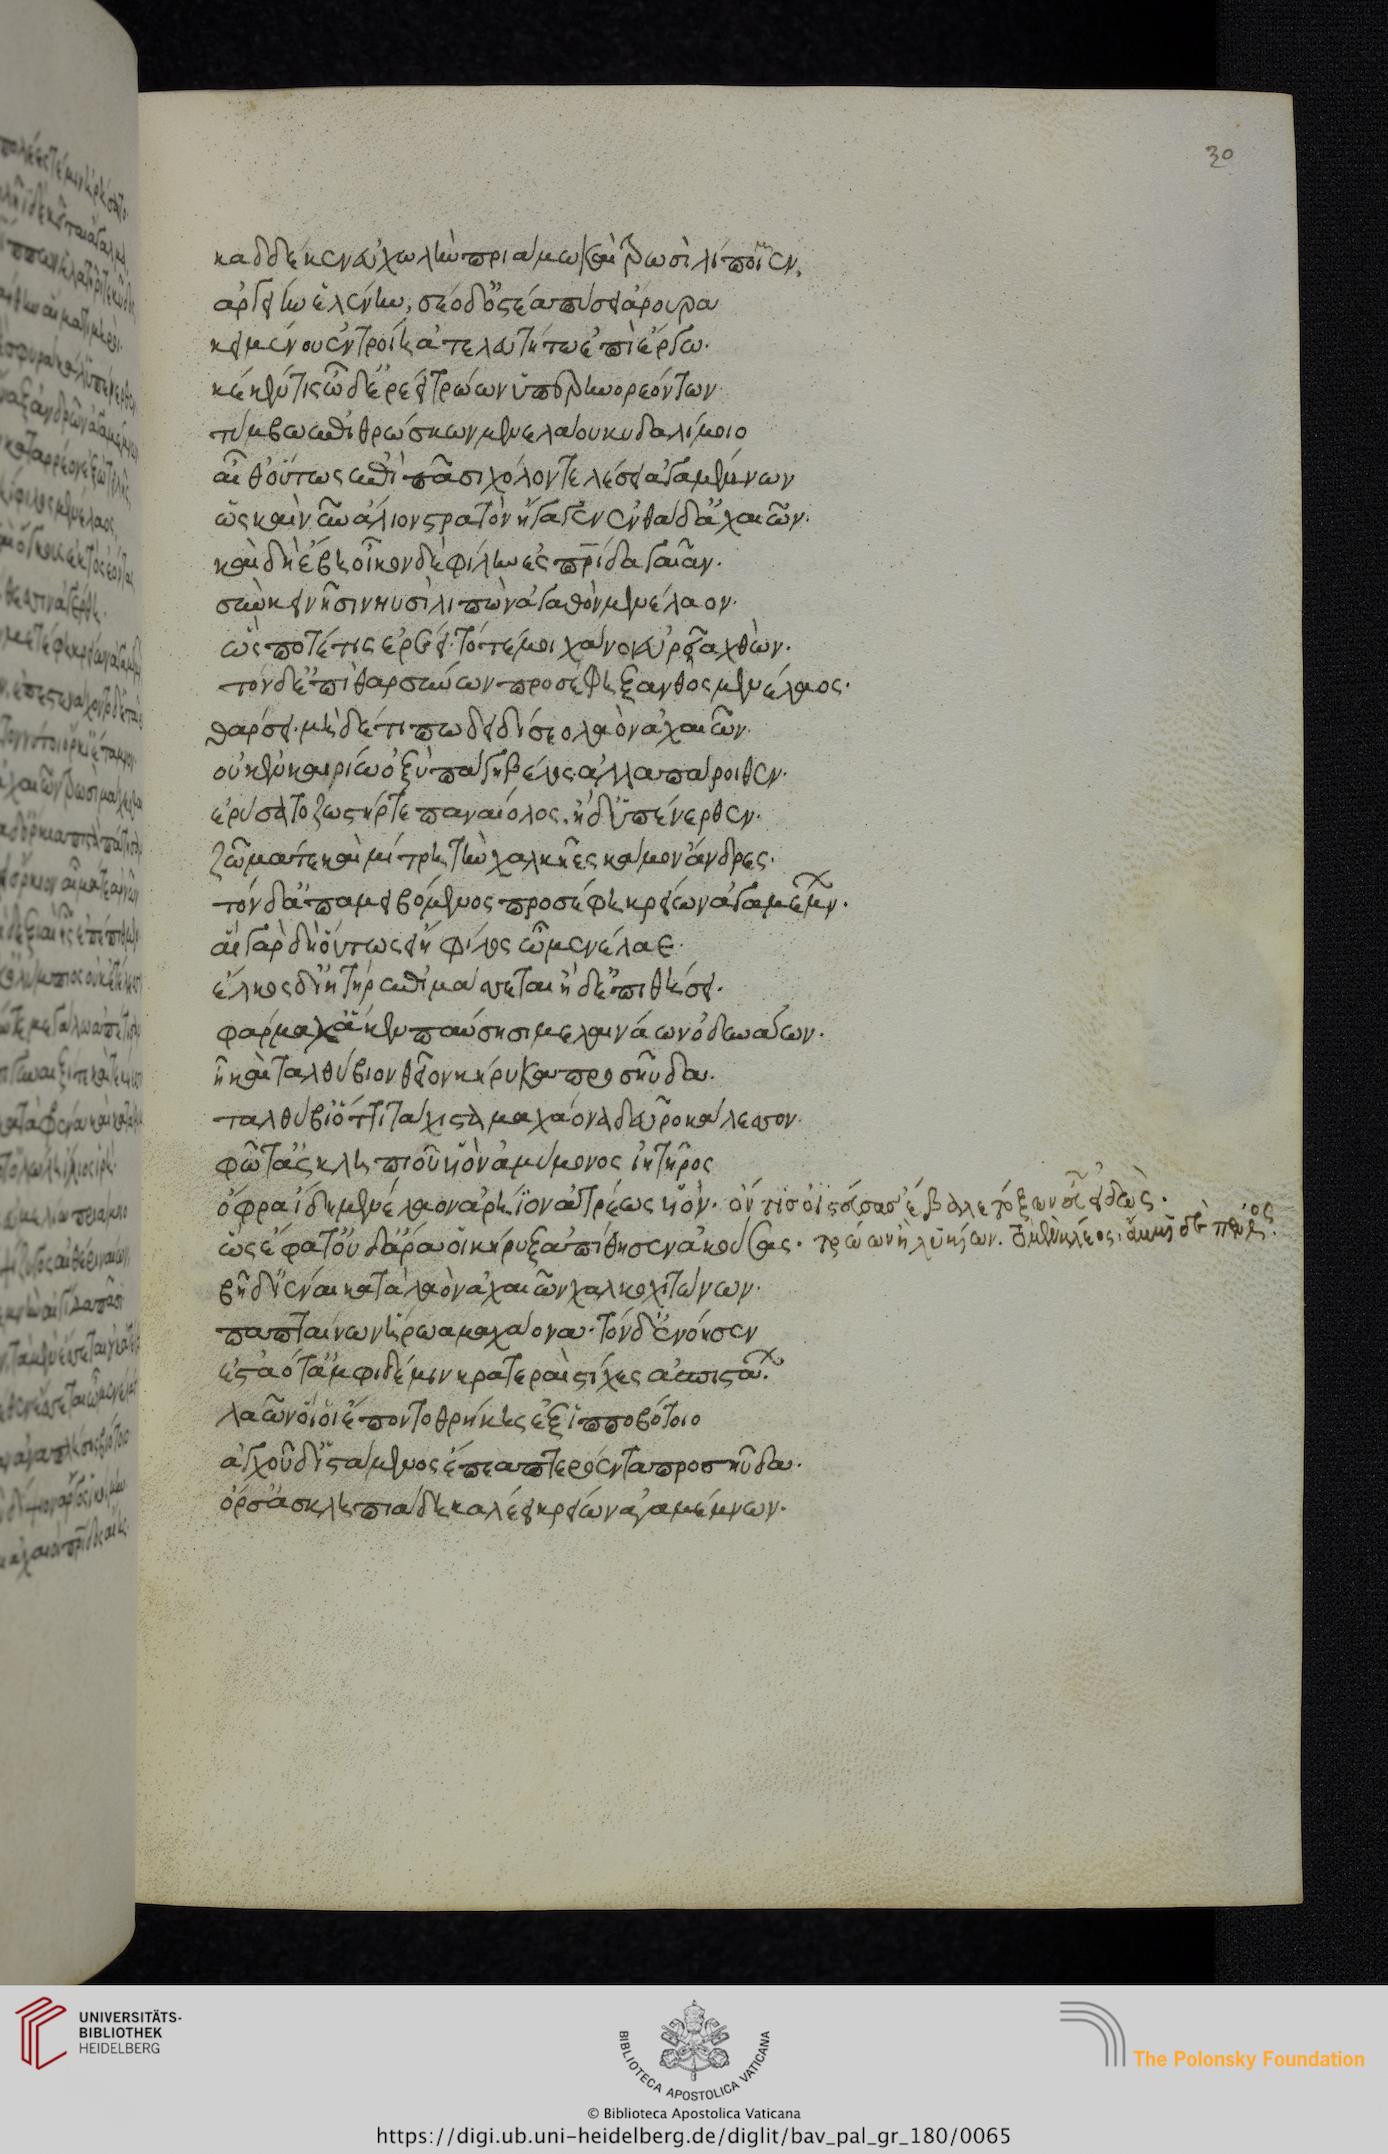 30
καδδέ κεν εὐχωλὴν πριάμω καὶ τρωσὶ λίποιεν,
ἀργείην ἑλένην, σέο δ' ὀστέα πύσει ἄρουρα
κειμένου ἐν τροίη ἀτελευτήτω ἐπὶ ἔργω.
κέ κέν τις ὧδ' ἐρέει τρώων ὑπερηνορεόντων
τύμβω ἐπιθρώσκων μενελάου κυδαλίμοιο
αἲ θ' οὕτως ἐπὶ πᾶσι χόλον τελέσει ἀγαμέμνων
ὡς καὶ νῦν ἅλιον στρατὸν ἤγαγεν ἐνθάδ' ἀχαιῶν.
καὶ δὴ ἔβη οἶκον δὲ φίλην ἐς πρίδα γαῖαν.
σὺν κεινῆσιν νηυσὶ λιπὼν ἀγαθὸν μενέλαον.
ὥς ποτέ τις ἐρέει. τότε μοι χάνοι εὐρεῖα χθών.
τὸν δ' ἐπιθαρσύνων προσέφη ξανθος μενέλαος.
θάρσει. μὴ δέ τί πω δειδίσεο λαὸν ἀχαιῶν.
οὐκ ἐν καιρίω ὀξὺ πάγη βέλος. ἀλλα πάροιθεν.
εἰρύσατο ζωστήρ τε παναίολος. ἠδ' ὑπένερθεν.
ζῶμα τε καὶ μίτρη, τὴν χαλκῆες κάμον ἄνδρες.
τὸν δ' ἀπαμειβόμενος προσέφη κρείων ἀγαμέμνων.
αἲ γὰρ δὴ οὕτως εἴη φίλος ὦ μενέλαε.
ἕλκος δ' ἰητὴρ ἐπιμάσσεται ἠδ' ἐπιθήσει.
φάρμαχ' ἅ κεν παύσησι μελαινάων ὀδυνάων.
ἦ καὶ ταλθύβιον θεῖον κήρυκα προσηύδα.
ταλθύβι' ὅττι τάχιστα μαχάονα δεῦρο κάλεσσον.
φῶτ' ἀσκληπιοῦ υἱὸν ἀμύμονος ἰητῆρος
ὄφρα ἴδη μενέλαον ἀρήϊον ἀτρέως υἱόν. ὅν τις ὀϊστεύσας ἔβαλε τόξων εὖ εἰδώς.
ὣς ἔφατ' οὐδ' ἄρα οἱ κήρυξ ἀπίθησεν ἀκούσας. τρώων ἢ λυκίων. τῶ μὲν κλέος. ἄμμι δὲ πένθος.
βῆ δ' ἰέναι κατὰ λαὸν ἀχαιῶν χαλκοχιτώνων.
παπταίνων ἥρωα μαχάονα. τὸν δ' ἐνόησεν
ἑσταότ' ἀμφὶ δέ μιν κρατεραὶ στίχες ἀσπιστάων.
λαῶν οἵ οἱ ἕποντο θρήκης ἐξ ἱπποβότοιο
ἀγχοῦ δ' ἱστάμενος ἔπεα πτερόεντα προσηύδα.
ὄρσ' ἀσκληπιάδη καλέει κρείων ἀγαμέμνων.
UNIVERSITÄTS-
BIBLIOTHEK
HEIDELBERG
BIBLIOTECA APOSTOLICA VATICANA
The Polonsky Foundation
© Biblioteca Apostolica Vaticana
https://digi.ub.uni-heidelberg.de/diglit/bav_pal_gr_180/0065